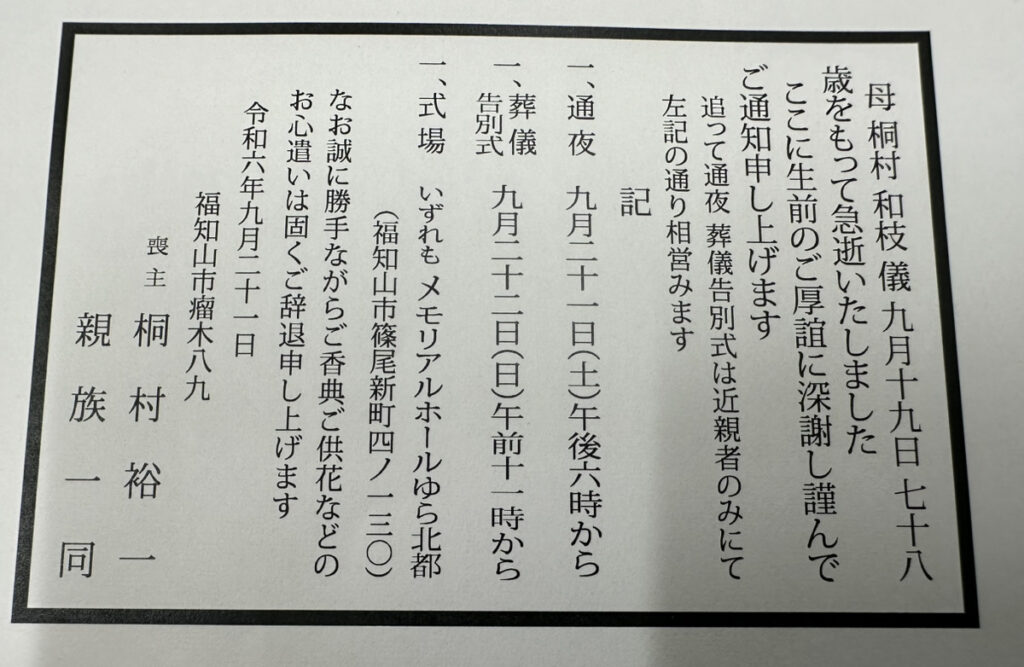 母 桐村 和枝 儀 九月十九日 七十八
歳をもって急逝いたしました
ここに生前のご厚誼に深謝し謹んで
ご通知申し上げます
追って通夜 葬儀告別式は近親者のみにて
左記の通り相営みます
記
一、通夜 九月二十一日(土)午後六時から
一、葬儀告別式 九月二十二日(日)午前十一時から
一、式場 いずれも メモリアルホールゆら北都
(福知山市篠尾新町四ノ一三〇)
なお誠に勝手ながらご香典ご供花などの
お心遣いは固くご辞退申し上げます
令和六年九月二十一日
福知山市瘤木八九
喪主 桐村裕一
親族一同